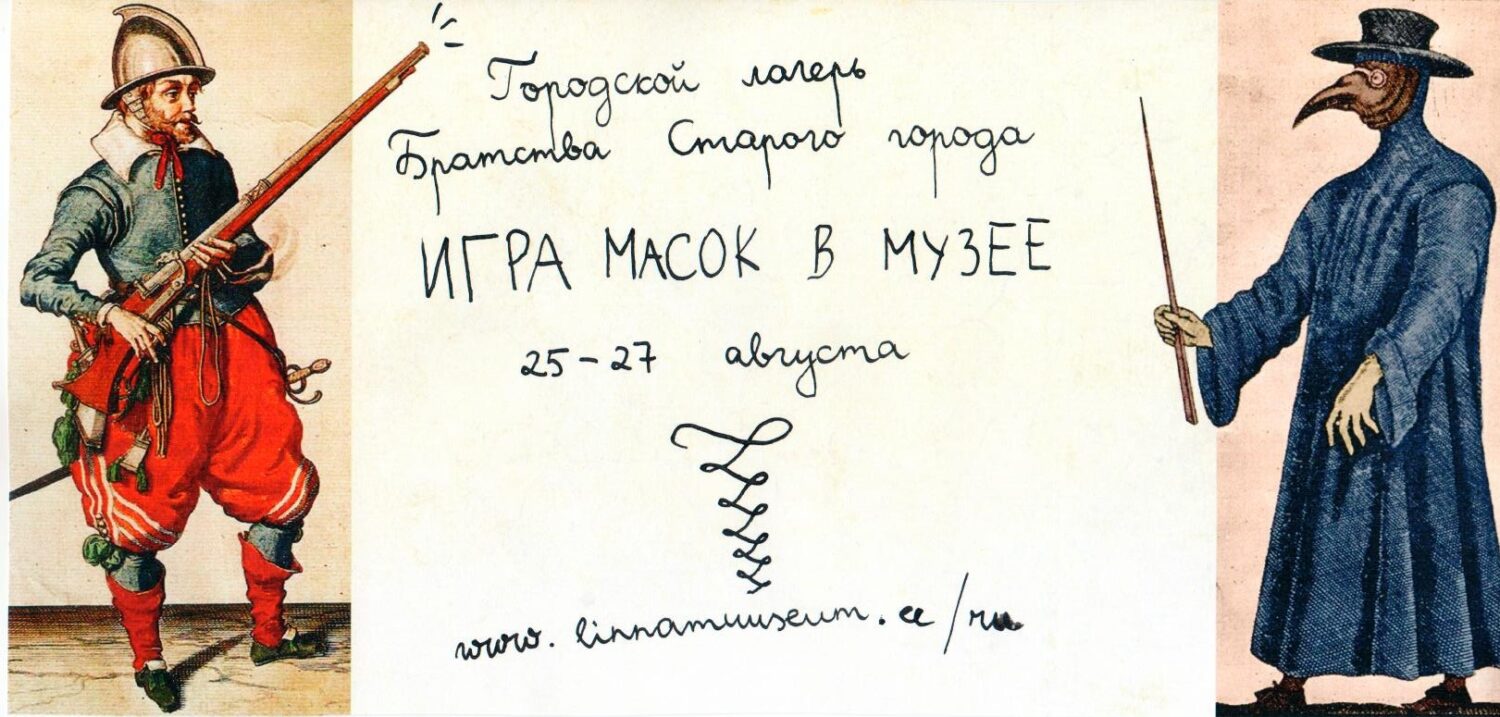 Городской лагерь
Братства Старого города
ИГРА МАСОК В МУЗЕЕ
25-27 августа
www.linnamuuseum.ee/ru